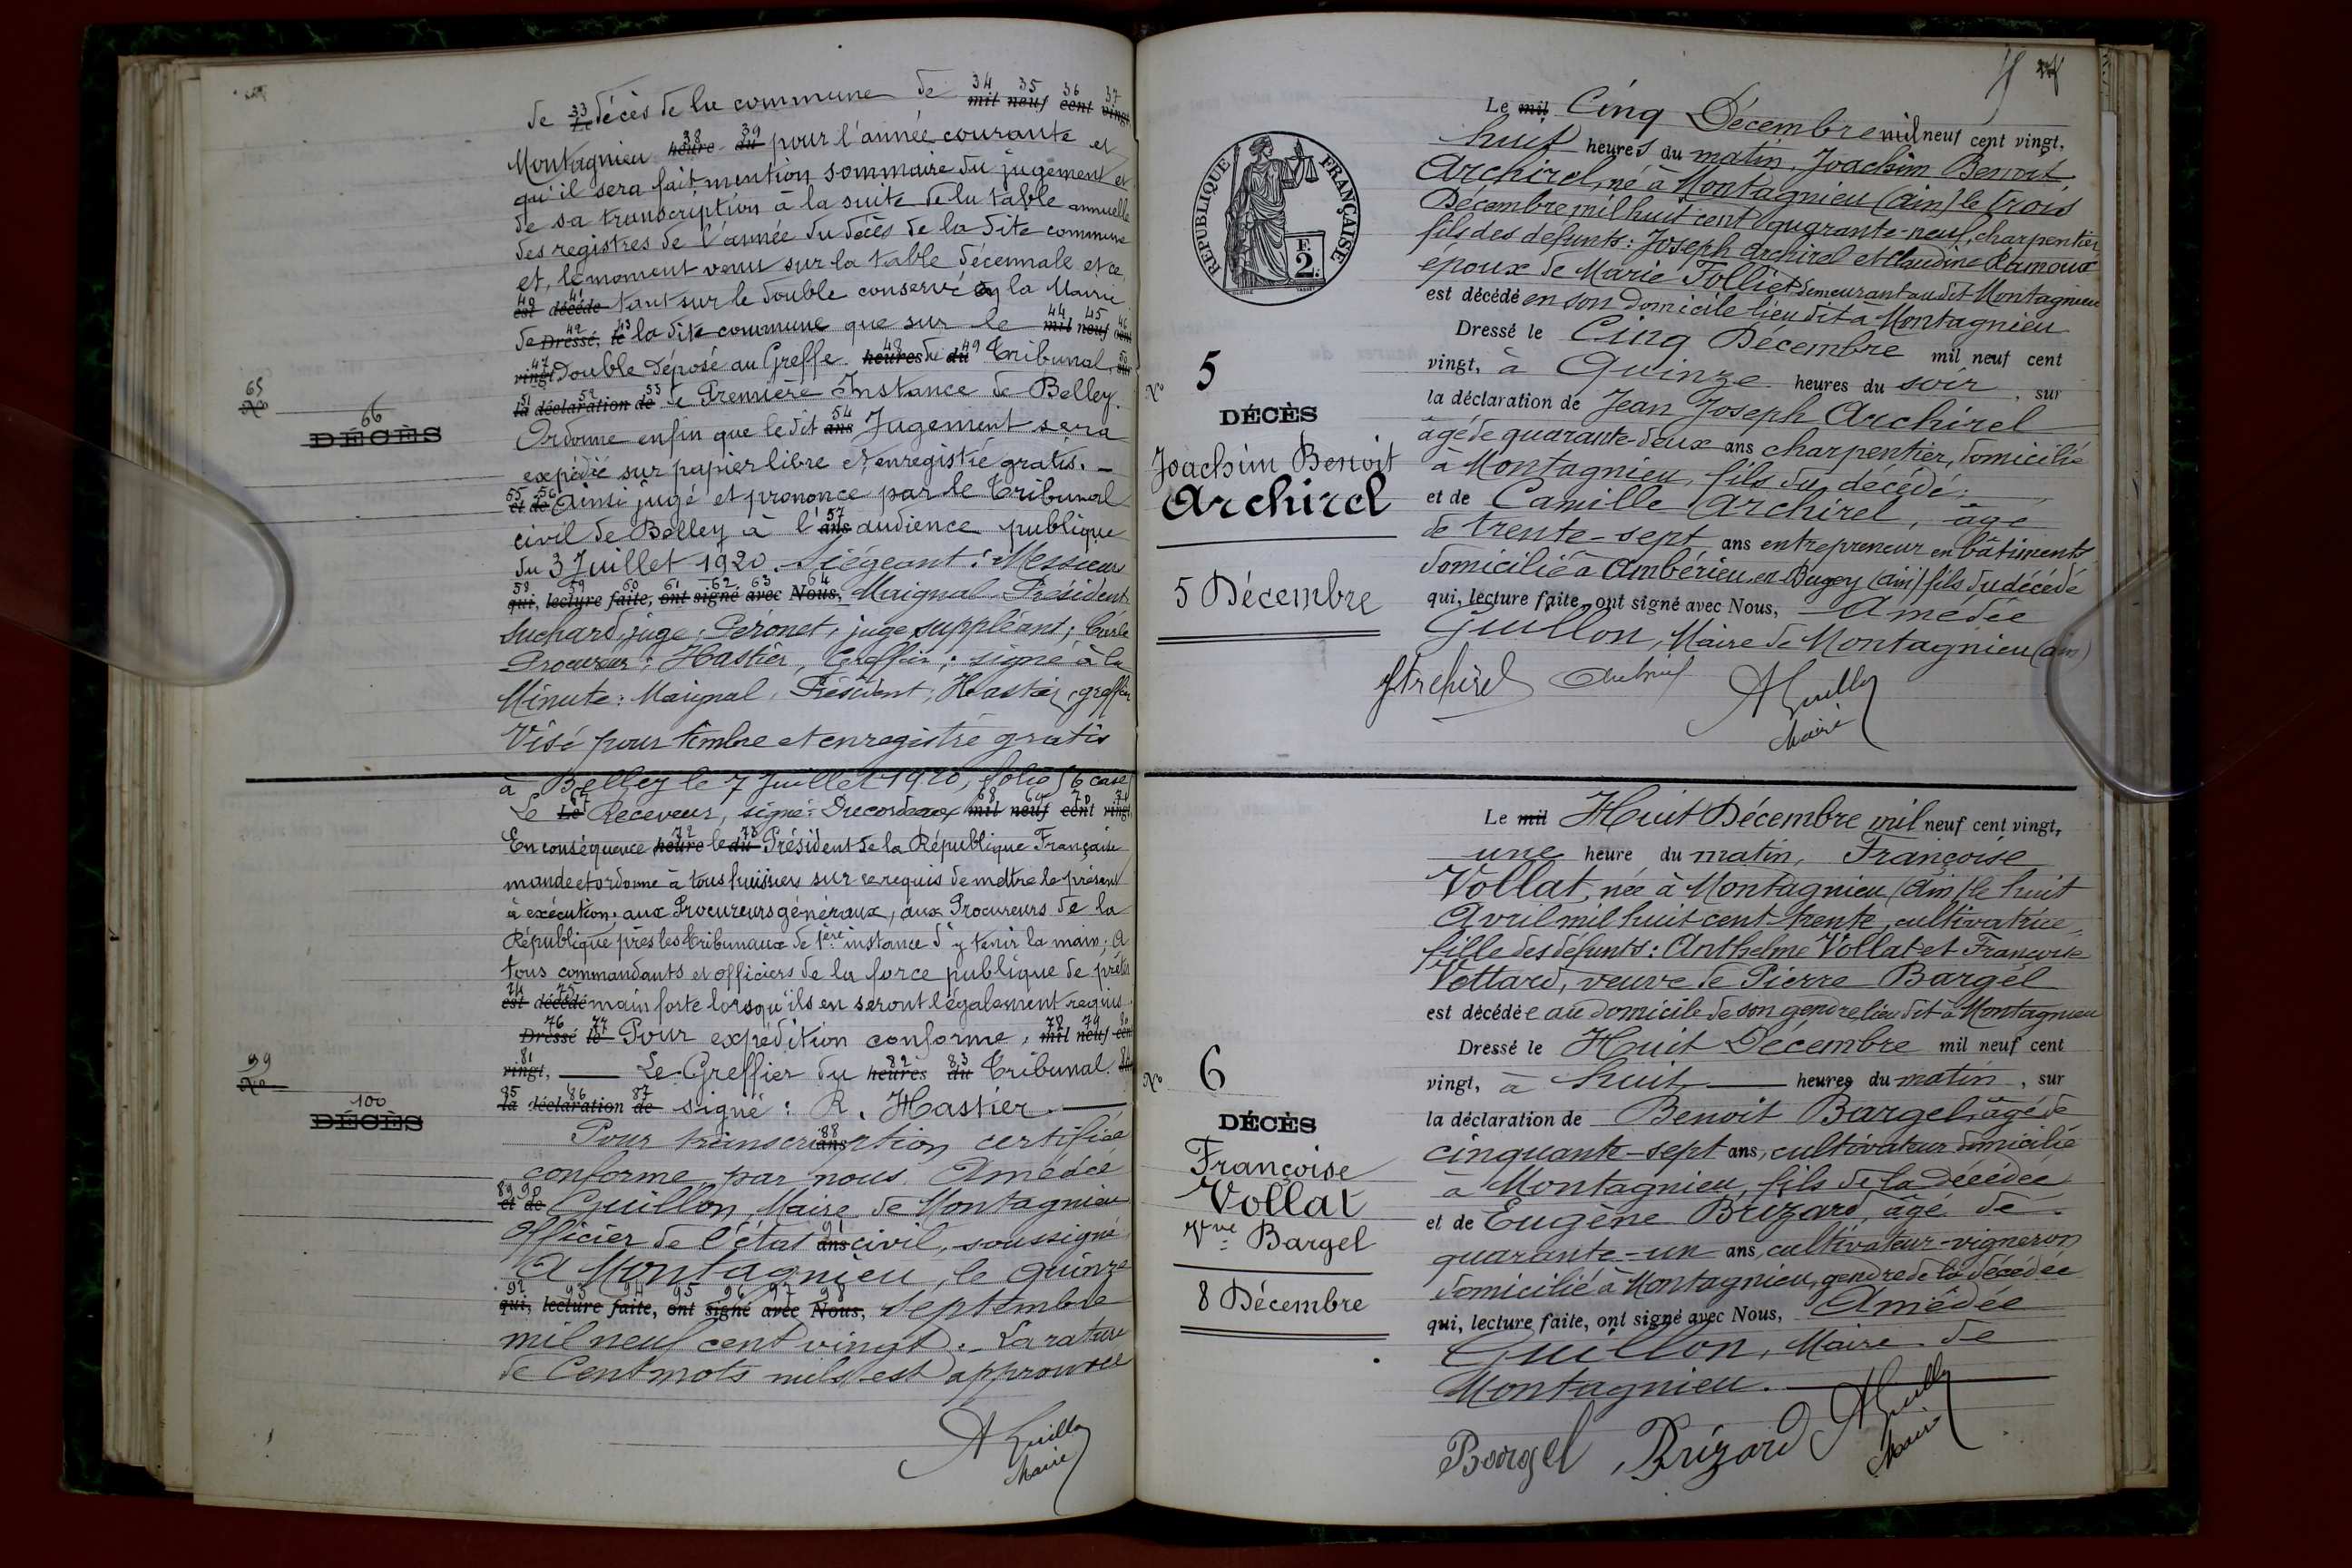 de 33 Le décès de la commune de 34 mil 35 neuf 36 cent 37 vingt
Montagnieu 38 heure 39 du pour l'année courante et
qu'il sera fait mention sommaire du jugement et
de sa transcription à la suite de la table annuelle
des registres de l'année du décès de la dite commune
et, le moment venu sur la table décennale et ce
40 est 41 décédé tant sur le double conservé à la Mairie
de 42 Dressé, 43 le la dite commune que sur le 44 mil 45 neuf 46 cent
47 vingt double déposé au Greffe 48 heures de 49 du Tribunal, 50 sur
51 la 52 déclaration 53 de de Première Instance de Belley.
Ordonne enfin que le dit 54 ans Jugement sera
expédié sur papier libre et enregistré gratis. -
55 et 56 de Ainsi jugé et prononcé par le Tribunal
civil de Belley à l' 57 ans audience publique
du 3 Juillet 1920. Siégeant : Messieurs
58 qui, 59 lecture 60 faite, 61 ont 62 signé 63 avec 64 Nous, Maignal Président
Suchard, juge; Peronet, juge suppléant;
Procureur; Hastier, Greffier; signé à la
Minute: Maignal, Président, Hastier, greffier
Visé pour timbre et enregistré gratis
à Belley le 7 Juillet 1920, folio 6 case
Le 67 Le Receveur, signé: Ducordeaux 68 mil 69 neuf 70 cent 71 vingt,
En conséquence 72 heure le 73 du Président de la République Française
mande et ordonne à tous huissiers sur ce requis de mettre le présent
à exécution, aux Procureurs généraux, aux Procureurs de la
République près les tribunaux de 1ère instance d'y tenir la main; à
tous commandants et officiers de la force publique de prêter
74 est 75 décédé main forte lorsqu'ils en seront légalement requis.
76 Dressé 77 le Pour expédition conforme, 78 mil 79 neuf 80 cent
81 vingt, Le Greffier du 82 heures 83 du Tribunal. 84 sur
85 la 86 déclaration 87 de signé : R. Hastier.
Pour transcri 88 ans ption certifiée
conforme par nous Amédée
89 et 90 de Guillon, Maire de Montagnieu
Officier de l'état 91 ans civil, soussigné
A Montagnieu, le quinze
92 qui, 93 lecture 94 faite, 95 ont 96 signé 97 avec 98 Nous, septembre
mil neuf cent vingt. La rature
de Cent mots nuls est approuvée
A Guillon
Maire
65
No
66
DÉCÈS
99
No
100
DÉCÈS
RÉPUBLIQUE FRANÇAISE
F.
2.
No 5
DÉCÈS
Joachim Benoit
Archirel
5 Décembre
Le mil Cinq Décembre mil neuf cent vingt,
huit heures du matin, Joachim Benoit
Archirel, né à Montagnieu (Ain) le trois
Décembre mil huit cent quarante-neuf, charpentier
fils des défunts: Joseph Archirel et Claudine Ramoux
époux de Marie Folliet demeurant au dit Montagnieu
est décédé en son domicile lieu dit à Montagnieu
Dressé le Cinq Décembre mil neuf cent
vingt, à Quinze heures du soir, sur
la déclaration de Jean Joseph Archirel
âgé de quarante-deux ans charpentier, domicilié
à Montagnieu, fils du décédé;
et de Camille Archirel, âgé
de trente-sept ans entrepreneur en bâtiments
domicilié à Ambérieu en Bugey (Ain) fils du décédé
qui, lecture faite, ont signé avec Nous, Amédée
Guillon, Maire de Montagnieu (Ain)
Archirel
A Guillon
Maire
No 6
DÉCÈS
Françoise
Vollat
Vve Bargel
8 Décembre
Le mil Huit Décembre mil neuf cent vingt,
une heure du matin, Françoise
Vollat, née à Montagnieu (Ain) le huit
Avril mil huit cent trente, cultivatrice,
fille des défunts: Anthelme Vollat et Françoise
Vettard, veuve de Pierre Bargel
est décédée au domicile de son gendre, lieu dit à Montagnieu
Dressé le Huit Décembre mil neuf cent
vingt, à huit heures du matin, sur
la déclaration de Benoit Bargel, âgé de
cinquante-sept ans, cultivateur domicilié
à Montagnieu, fils de la décédée
et de Eugène Brizard, âgé de
quarante-un ans, cultivateur-vigneron
domicilié à Montagnieu, gendre de la décédée
qui, lecture faite, ont signé avec Nous, Amédée
Guillon, Maire de
Montagnieu.
Bargel Brizard A Guillon
Maire